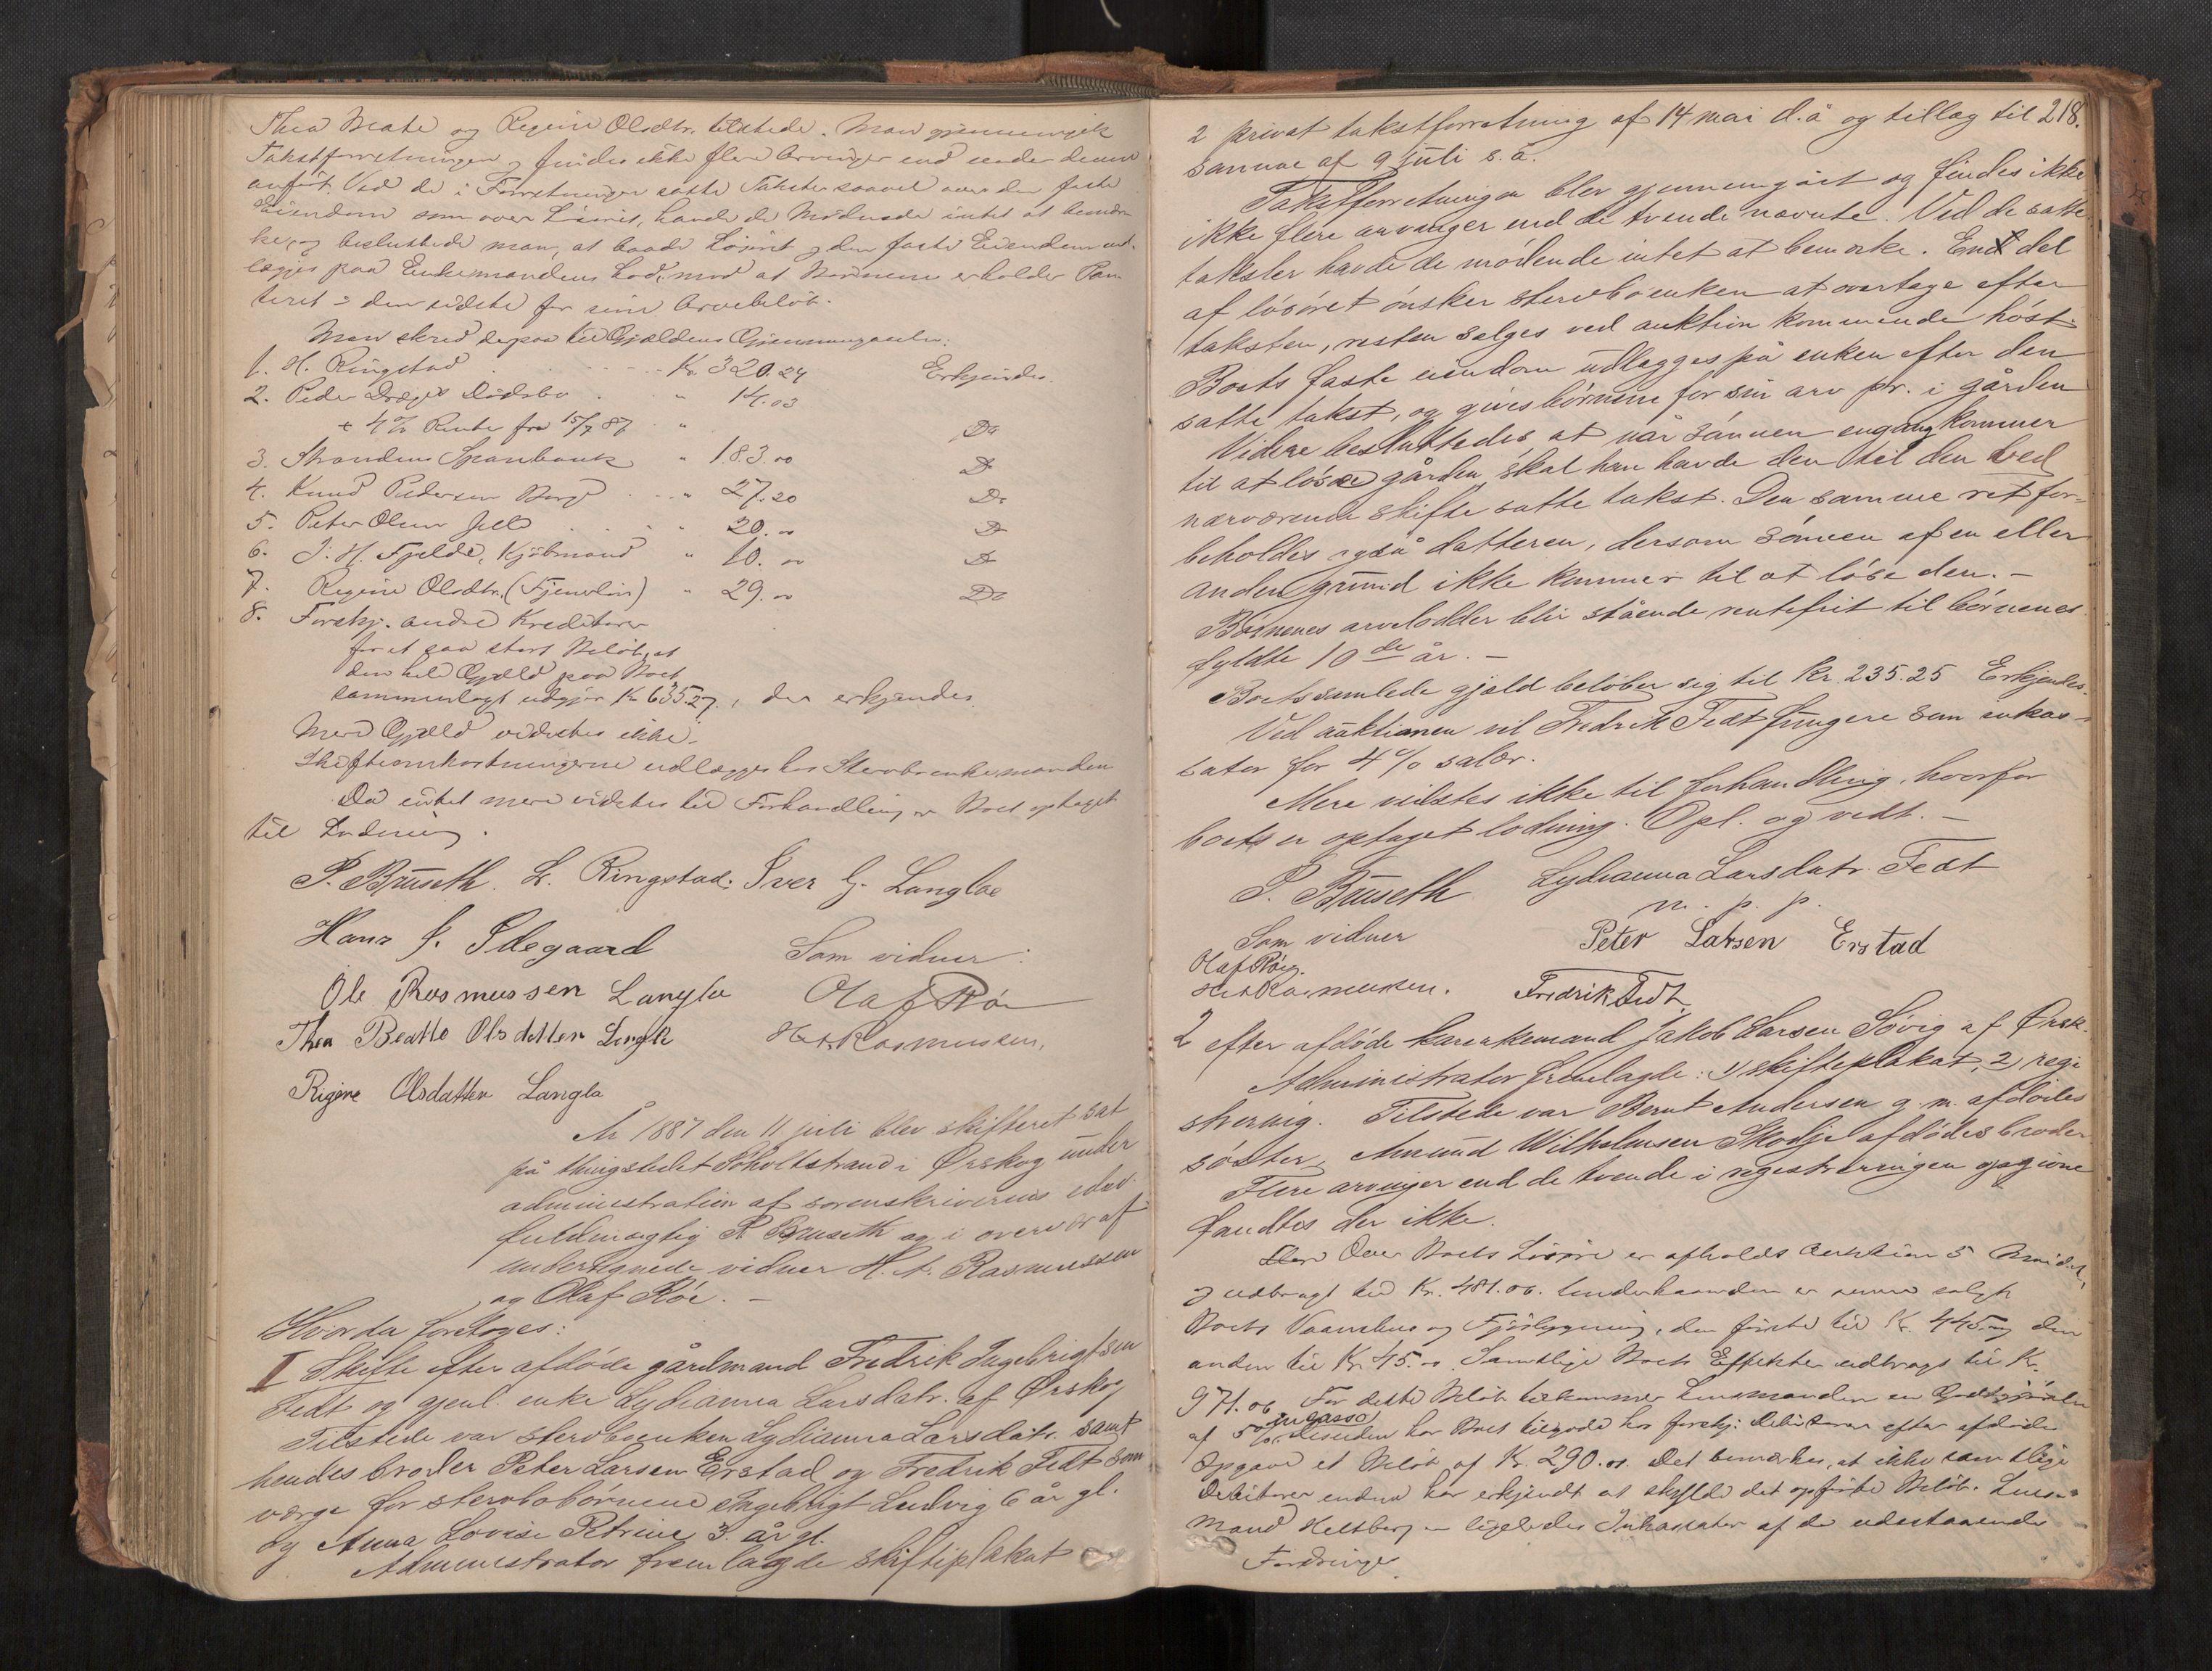 Thea Beate og Regine Olsdtr. tilstede. Man gjennemgik
Takstforretningen og findes ikke flere Arvinger end under denne
anført. Ved de i Forretningen satte Takster saavel over den faste
Eiendom som over Løsøret, havde de Mødende intet at bemær-
ke, og besluttede man, at baade Løsøret og den faste Eiendom ud-
lægges paa Enkemandens Lod, mod at Børnene erholder Pan-
teret i den sidste for sine Arvebeløb.
Man skred derpaa til Gjældens Gjennemgaaelse:
1. H. Ringstad Kr. 320.24 Erkjendes.
2. Peder Døds­bo " 14.03
+ 4% Renter fra 15/7 87 " Do
3. Strandens Sparebank " 183.00 Do
4. Knud Pedersen " 27.20 Do
5. Peter Olsen " 20.00 Do
6. J. H. Fjelde, Kjøbmand " 10.00 Do
7. Regine Olsdtr. (Tjenerløn) " 29.00 Do
8. Forskj. andre Kreditorer
for et saa stort Beløb, at
den hele Gjæld paa Boet
sammenlagt udgjør Kr 635.27, der erkjendes.
Mere Gjæld vidstes ikke.
Skifteomkostningerne udlægges hos Stervboenkemanden.
Da intet mere vidstes til Forhandling er Boet optaget
til Lodning.
P. Bruseth. L. Ringstad. Iver G. Langloe
Hans J. Ødegaard Som vidner:
Ole Rasmussen Langlo Olaf Røe
Thea Beatte Olsdatter Langlo H. A. Rasmussen,
Rigine Olsdatter Langlo
År 1887 den 11 juli blev skifteret sat
på thingstedet Søholtstrand i Ørskog under
administration af sorenskriverens edsv.
fuldmægtig P. Bruseth og i overvær af
undertegnede vidner H. A. Rasmussen
og Olaf Røe. –
Hvorda foretoges:
I Skifte efter afdøde gårdmand Fredrik Ingebrigtsen
Fedt og gjenl. enke Lydianna Larsdatr. af Ørskog
Tilstede var stervboenken Lydianna Larsdatr. samt
hendes broder Peter Larsen Erstad og Fredrik Fedt som
værge for stervbobørnene Ingebrigt Ludvig 6 år gl.
og Anna Lovise Petrine 3 år gl.
Administrator fremlagde skifteplakat
218.
2 privat takstforretning af 14 mai d.å og tillæg til
samme af 9 juli s. å.
Takstforretningen blev gjennemgået og findes ikke
ikke flere arvinger end de tvende nævnte. Ved de satte
takster havde de mødende intet at bemærke. End del
af løsøret ønsker stervboenken at overtage efter
taksten, resten selges ved auktion kommende høst.
Boets faste eiendom udlægges på enken efter den
satte takst, og gives børnene for sin arv pr. i gården
Videre besluttedes, at når sønnen engang kommer
til at løse gården, skal han havde den til den ved
nærværende skifte satte takst. Den samme ret for-
beholdes også datteren, dersom sønnen af en eller
anden grund ikke kommer til at løse den. –
Børnenes arvelodder blir stående rentefrit til børnenes
fyldte 10de år. –
Boets samlede gjæld beløber sig til Kr. 235.25 Erkjendes.
Ved auktionen vil Fredrik Fedt fungere som inkas-
sator for 4% salær.
Mere vidstes ikke til forhandling, hvorfor
boets er optaget lodning. Opl. og vedt. –
P. Bruseth Lydianna Larsdatr. Fedt
m. p. p.
Som vidner Peter Larsen Erstad
Olaf Røe.
H. A. Rasmussen. Fredrik Fedt
2 efter afdøde kårenkemand Jakob Larsen Søvig af Ørsk.
Administrator fremlagde: 1) skifteplakat, 2) regi
strering. Tilstede var Bernt Andersen g. m. afdødes
søster, Amund Wilhelmsen Skodje afdødes broder
Flere arvinger end de tvende i registreringen opgivne
fandtes der ikke.
Over Boets Løsøre er afholdt Auktion 5 Mai d.A,
og udbragt til Kr. 481.06. Underhaanden er senere solgt
Boets Vaanehus og Fjøsbygning, den første til Kr. 445.00, den
anden til Kr 45.00. Samtlige Boets Effekter udbragt til Kr.
971.06. For dette Beløb tilkommer Lensmanden en Godtgjørelse
af 5% ingasso Desuden har Boet tilgode hos forskj. Debitorer efter afdødes
Opgave et Beløb af Kr. 290.00. Det bemærkes, at ikke samtlige
Debitorer endnu har erkjendt at skylde det opførte Beløb. Lens-
mand Heltberg er ligeledes Inkassator af de udestaaende
Fordringer.